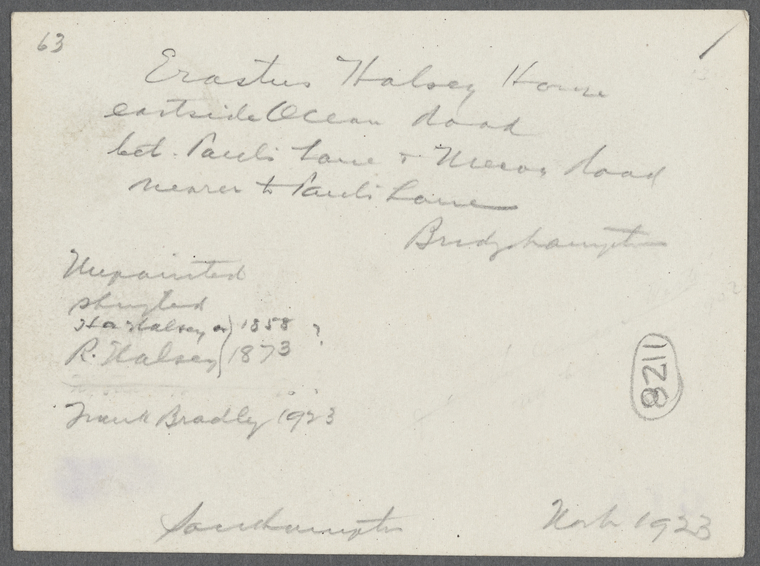 63
Erastus Halsey House
eastside Ocean Road
bet. Paul's Lane + Mecox Road
nearer to Paul's Lane
Bridgehampton
Unpainted
shingled
Halsey or } 1858 ?
R. Halsey } 1873
1128
Frank Bradley 1923
Southampton
1923